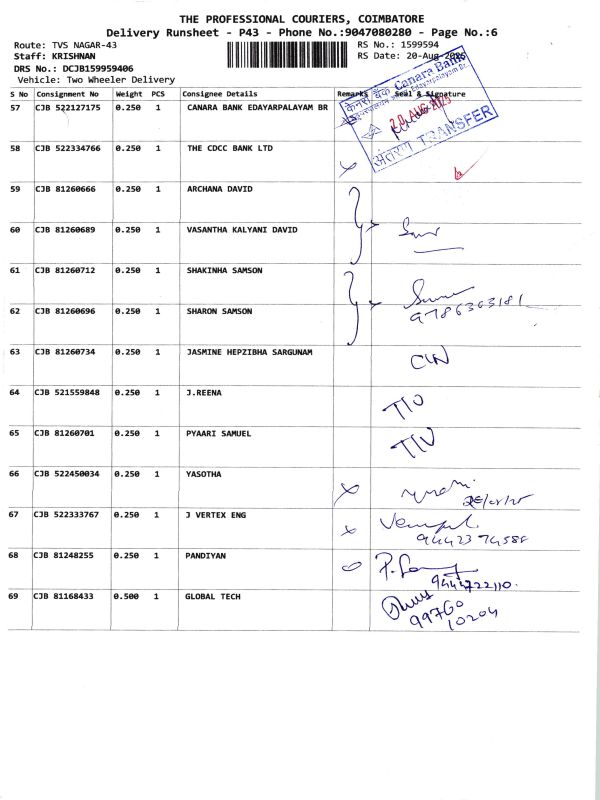 THE PROFESSIONAL COURIERS, COIMBATORE
Delivery Runsheet - P43 - Phone No.:9047080280 - Page No.:6
Route: TVS NAGAR-43
Staff: KRISHNAN
DRS No.: DCJB159959406
Vehicle: Two Wheeler Delivery
RS No.: 1599594
RS Date: 20-Aug-2025
S No Consignment No Weight PCS Consignee Details Remarks Seal & Signature
57 CJB 522127175 0.250 1 CANARA BANK EDAYARPALAYAM BR
केनरा बैंक Canara Bank
Edayarpalayam Br.
20 AUG 2025
अंतरण TRANSFER
58 CJB 522334766 0.250 1 THE CDCC BANK LTD
59 CJB 81260666 0.250 1 ARCHANA DAVID
60 CJB 81260689 0.250 1 VASANTHA KALYANI DAVID
61 CJB 81260712 0.250 1 SHAKINHA SAMSON
9786363181
62 CJB 81260696 0.250 1 SHARON SAMSON
63 CJB 81260734 0.250 1 JASMINE HEPZIBHA SARGUNAM
64 CJB 521559848 0.250 1 J.REENA
65 CJB 81260701 0.250 1 PYAARI SAMUEL
66 CJB 522450034 0.250 1 YASOTHA
67 CJB 522333767 0.250 1 J VERTEX ENG
9442374588
68 CJB 81248255 0.250 1 PANDIYAN
9444722110.
69 CJB 81168433 0.500 1 GLOBAL TECH
99760
10204